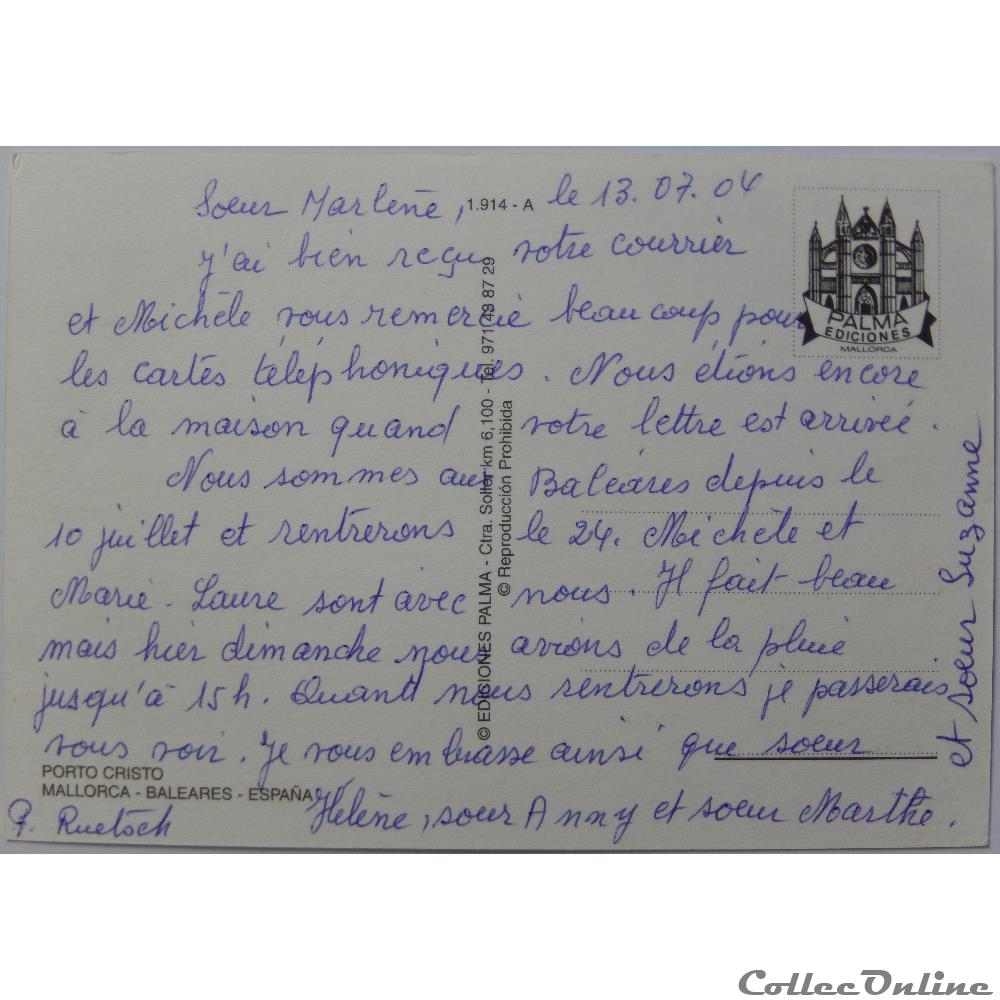 Soeur Marlène, le 13.07.04
1.914 - A
j'ai bien reçu votre courrier
et Michèle vous remercie beaucoup pour
les cartes téléphoniques. Nous étions encore
à la maison quand votre lettre est arrivée.
Nous sommes aux Baléares depuis le
10 juillet et rentrerons le 24. Michèle et
Marie-Laure sont avec nous. Il fait beau
mais hier dimanche nous avions de la pluie
jusqu'à 15h. Quand nous rentrerons je passerais
vous voir. Je vous embrasse ainsi que soeur
Hélène, soeur Anny et soeur Marthe.
et soeur Suzanne
P. Ruetsch
PORTO CRISTO
MALLORCA - BALEARES - ESPAÑA
© EDICIONES PALMA - Ctra. Soller km 6,100 - Tel. 971 43 87 29
© Reproducción Prohibida
PALMA
EDICIONES
MALLORCA
CollecOnline